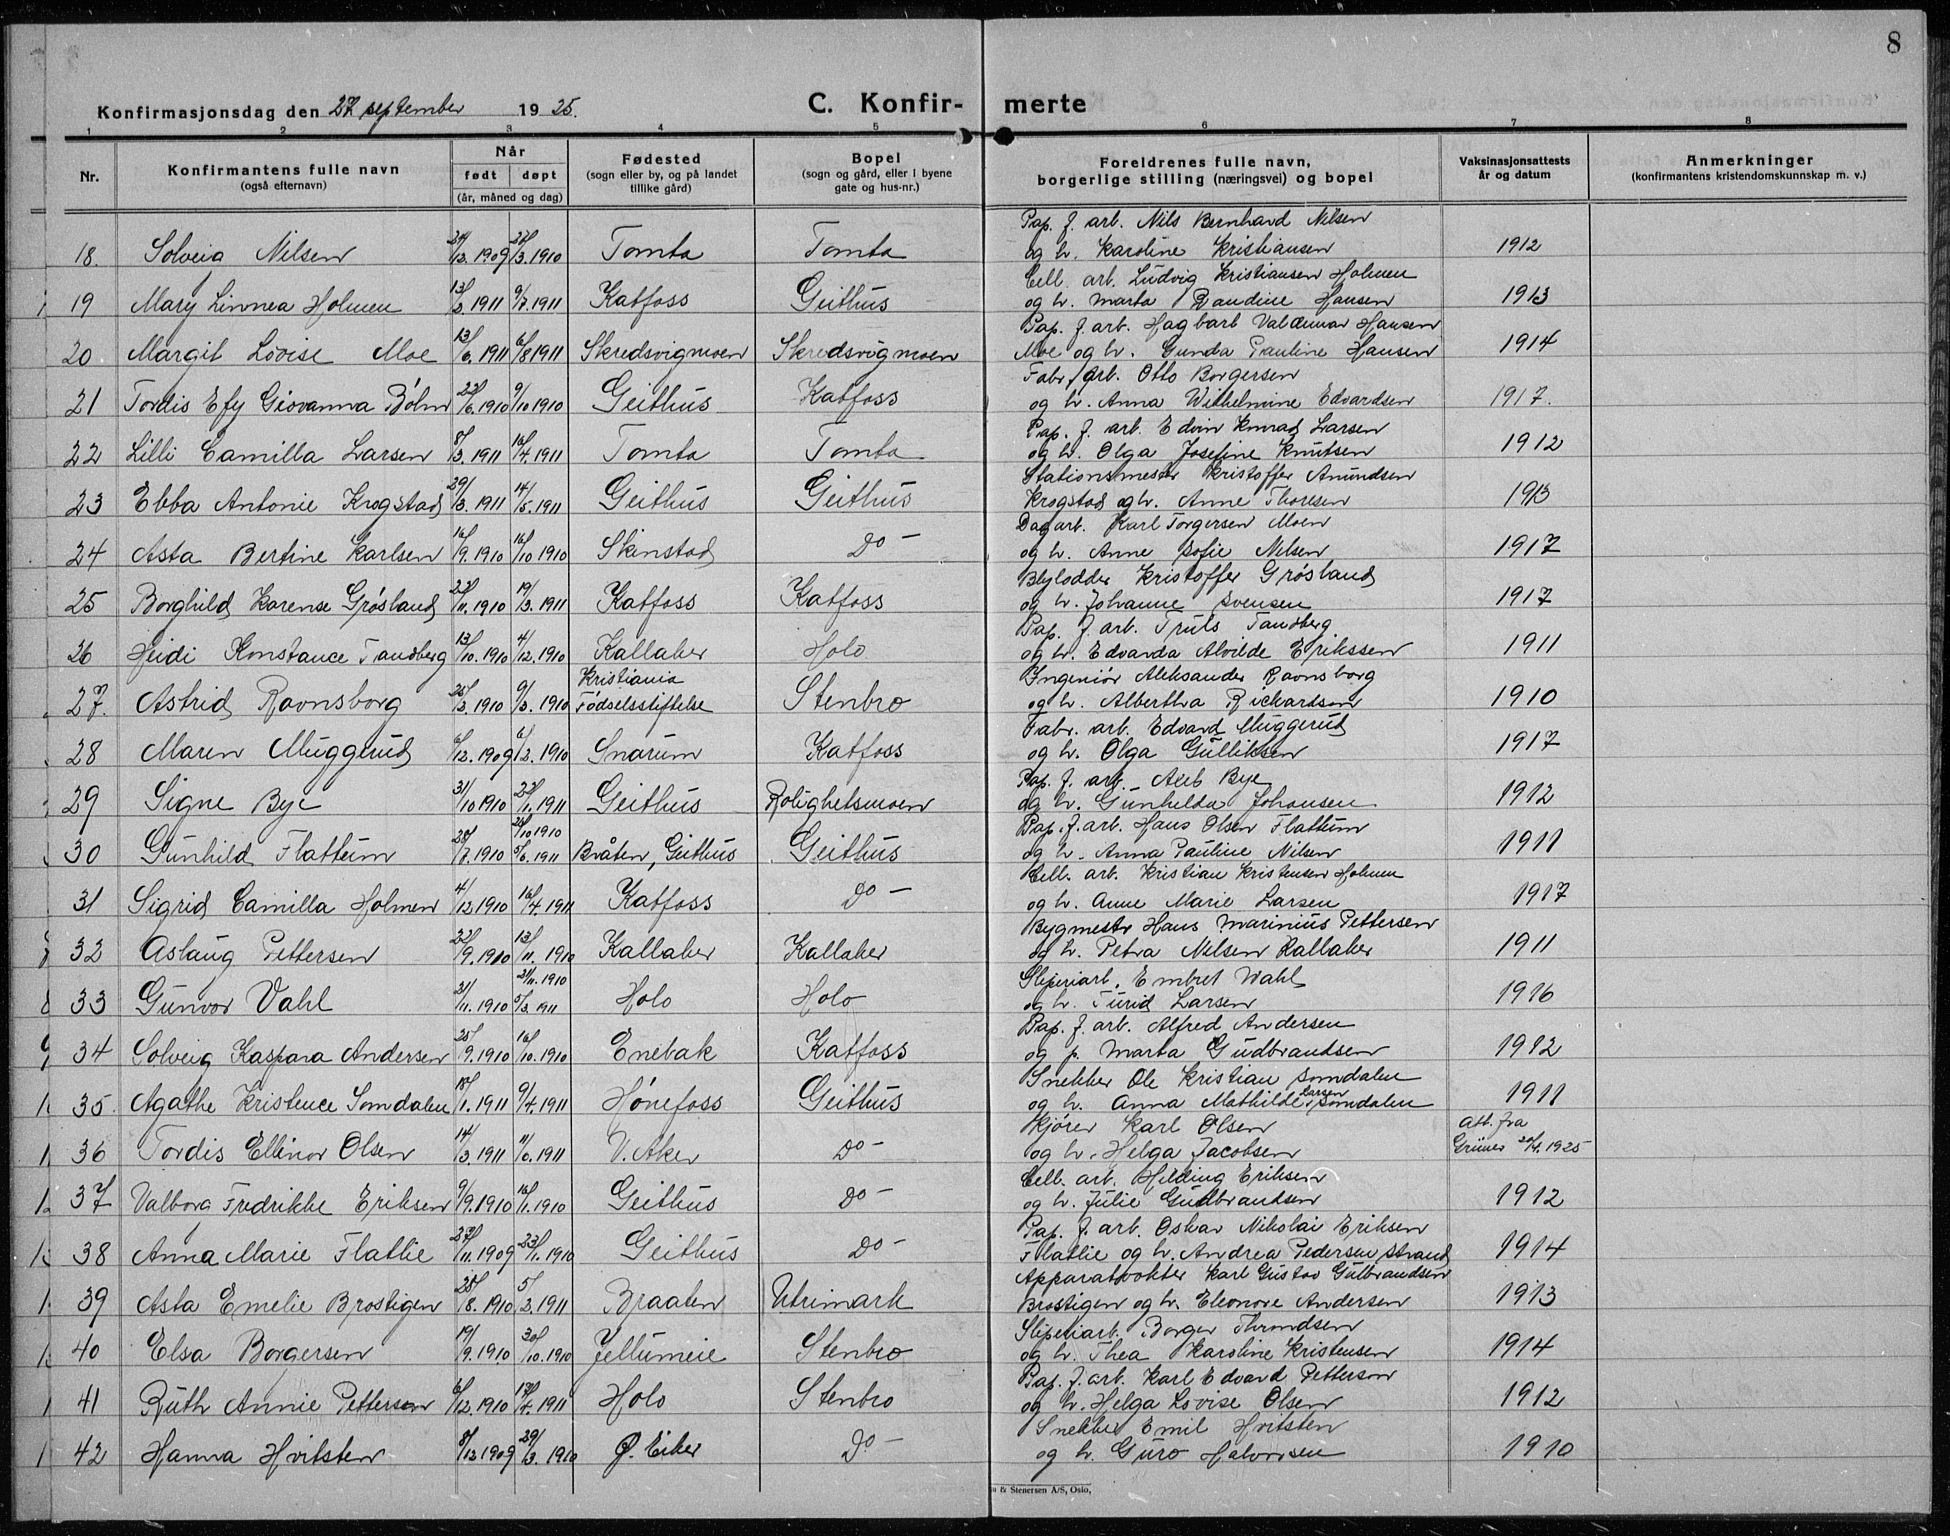 8
Konfirmasjonsdag den 27 september 1925. C. Konfirmerte
1 2 3 4 5 6 7 8
Nr. Konfirmantens fulle navn (også efternavn) Når født døpt (år, måned og dag) Fødested (sogn eller by, og på landet tillike gård) Bopel (sogn og gård, eller i byene gate og hus-nr.) Foreldrenes fulle navn, borgerlige stilling (næringsvei) og bopel Vaksinasjonsattests år og datum Anmerkninger (konfirmantens kristendomskunnskap m. v.)
Pap. f. arb. Nils Bernhard Nilsen
18. Solveig Nilsen 1909 27/3. 1910 Tomta Tomta og h. Karoline Kristiansen 1912
Cell. arb. Ludvig Kristiansen Holmen
19 Mary Linnea Holmen 1911 9/7. 1911 Katfoss Geithus og h. Marta Randine Hansen 1913
Pap. f. arb. Hagbart Valdemar Hansen
20 Margit Lovise Moe 13/6. 1911 6/8 1911 Skredsvigmoen Skredsvigmoen Moe og h. Gunda Pauline Hansen 1914
Fabr. arb. Otto Borgersen
21 Tordis Efy Giovanna Böhm 22/6. 1910 9/10 1910 Geithus Katfoss og h. Anna Wilhelmine Edvardsen 1917.
Pap. f. arb. Edvin Konrad Larsen
22 Lilli Camilla Larsen 8/3. 1911 16/4. 1911 Tomta Tomta og h. Olga Josefine Knutsen 1912
Stationsmester Kristoffer Amundsen
23 Ebba Antonie Krogstad 29/3. 1911 14/5. 1911 Geithus Geithus Krogstad og h. Anne Thoresen 1913
Dagarb. Karl Torgersen Moen
24 Asta Bertine Karlsen 16/9. 1910 16/10 1910 Skinstad Do - og h. Anne Sofie Nilsen 1917
Blylodder Kristoffer Grøsland
25 Borghild Karense Grøsland 22/11. 1910 19/3. 1911 Katfoss Katfoss og h. Johanne Svensen 1917
Pap. f. arb. Truls Tandberg
26 Heidi Konstance Tandberg 13/10. 1910 4/12. 1910 Kallaber Holo og h. Edvarda Alvilde Erikssen 1911
Kristiania Ingeniør Aleksander Ravnsborg
27. Astrid Ravnsborg 1910 1910 Fødselsstiftelse Stenbro og h. Albertha Rickardson 1910
Fabr. arb. Edvard Muggerud
28 Maren Muggerud 6/12. 1909 6/2. 1910 Snarum Katfoss og h. Olga Gulliksen 1917
Pap. f. arb. Bye
29 Signe Bye 31/10 1910 22/1. 1911 Geithus Rolighetsmoen og h. Gunhilda Johansen 1912
1910 Pap. f. arb. Hans Olsen Flattum
30 Gunhild Flattum 1910 5/6. 1911 Bråten, Geithus Geithus og h. Anna Pauline Nilsen 1911
Cell. arb. Kristian Kristensen Holmen
31 Sigrid Camilla Holmen 4/12 1910 16/4. 1911 Katfoss Do - og h. Anne Marie Larsen 1917
Bygmestr Hans Marinius Pettersen
32 Aslaug Pettersen 22/9. 1910 13/11. 1910 Kallaber Kallaber og h. Petra Nilsen Kallaber 1911
1910 Sliperiarb. Embret Wahl
33 Gunvor Vahl 1910 5/3. 1911 Holo Holo og h. Turid Larsen 1916
Pap. f. arb. Alfred Andersen
34 Solveig Kaspara Andersen 25/9. 1910 16/10. 1910 Enebak Katfoss og p. Marta Gudbrandsen 1912
Snekker Ole Kristian Somdalen
35. Agathe Kristence Somdalen 1911 9/4. 1911 Hønefoss Geithus og h. Anna Mathilde Larsen Somdalen 1911
Kjører Karl Olsen Att. fra
36 Tordis Ellinor Olsen 14/3. 1911 11/6. 1911 V. Aker Do - og h. Helga Jacobsen 1925
Cell. arb. Hilding Eriksen
37 Valborg Fredrikke Eriksen 9/9. 1910 16/1. 1910 Geithus Do - og h. Julie Gudbrandsen 1912
Pap. f. arb. Oskar Nikolai Eriksen
38 Anna Marie Flatlie 27/11. 1909 23/1. 1910 Geithus Do - Flatlie og h. Andrea Pedersen Strand 1914
Apparatvokter Karl Gustav Gulbrandsen
39 Asta Emelie Brostigen 28/8. 1910 5/2. 1911 Braaten Utrimark Brostigen og h. Eleonore Andersen 1913
Sliperiarb. Borger Throndsen
40 Elsa Borgersen 19/9. 1910 30/10. 1910 Jellumeie Stenbro og h. Thea Karoline Kristensen 1914
Pap. f. arb. Karl Edvard Pettersen
41 Ruth Annie Pettersen 6/12. 1910 17/4. 1911 Holo Stenbro og h. Helga Lovise Olsen 1912
Snekker Emil Hvitsten
42 Hanna Hvitsten 8/12 1909 29/3. 1910 Ø. Eiker Do - og h. Guro Halvorsen 1910
& Stenersen A/S, Oslo,